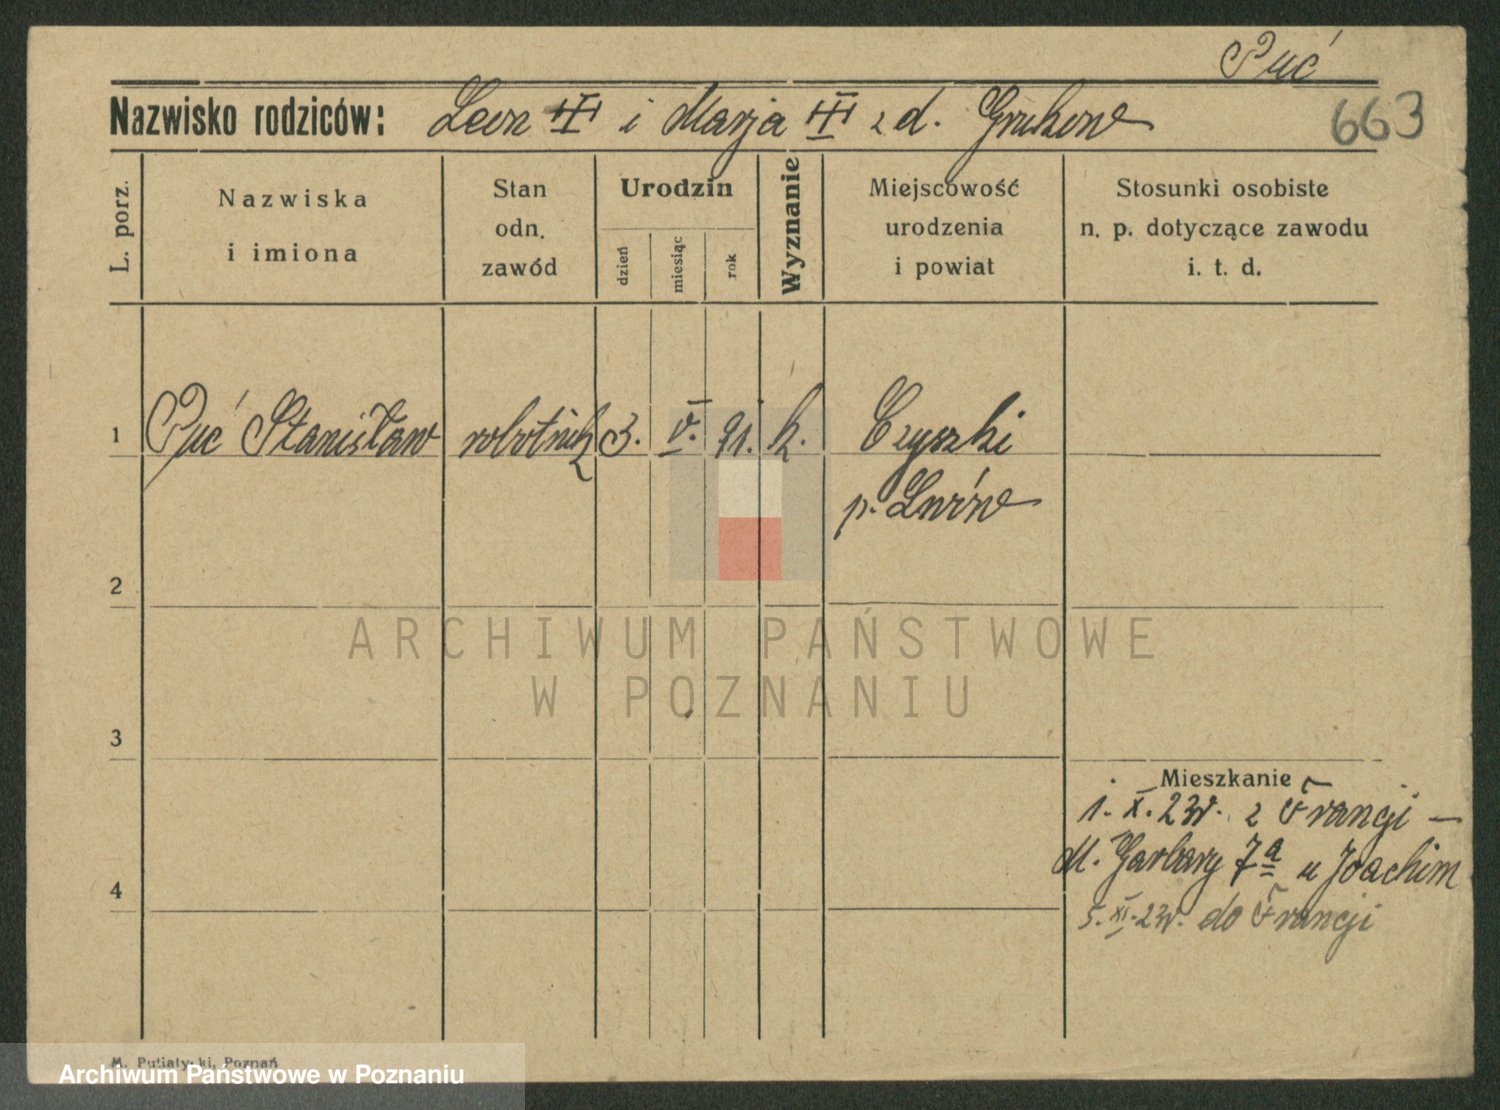 Puć
663
Nazwisko rodziców: Leon i Marja z d. Grukow
L. porz.
Nazwiska
i imiona
Stan
odn.
zawód
Urodzin
dzień
miesiąc
rok
Wyznanie
Miejscowość
urodzenia
i powiat
Stosunki osobiste
n. p. dotyczące zawodu
i. t. d.
1 Puć Stanisław robotnik 3. V. 91. k. Czyszki
p. Lwów
2
ARCHIWUM PAŃSTWOWE
W POZNANIU
3
Mieszkanie
1. X. 23r. z Francji —
M. Garbary 7a u Joachim
4
5. XI. 23r. do Francji
M. Putiatycki, Poznań
Archiwum Państwowe w Poznaniu